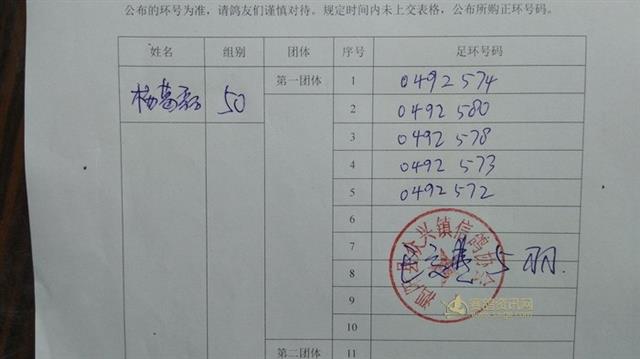 公布的环号为准，请鸽友们谨慎对待。规定时间内未上交表格，公布所购正环号码。
姓名 组别 团体 序号 足环号码
杨 50 第一团体 1 0492574
2 0492580
3 0492578
4 0492573
5 0492572
6
7
已交费5羽.
8
9
10
第二团体 11
兴镇信鸽协会